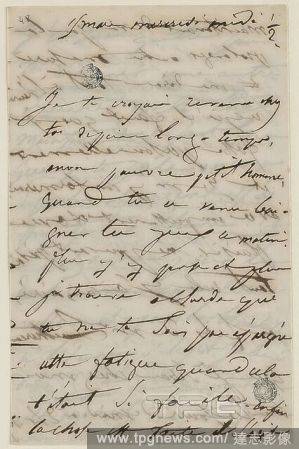 1er mars mercredi midi 1/2
Je te croyais revenu chez
toi depuis longtemps,
mon pauvre petit homme,
quand tu es venu bai-
gner tes yeux ce matin.
plus j'y pense et plus
je trouve absurde que
tu ne te sois pas épargné
cette fatigue quand cela
t'était si facile. Enfin
la chose est faite
www.tpgnews.com/ 達志影像